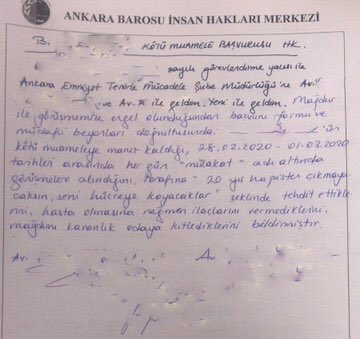 ANKARA BAROSU İNSAN HAKLARI MERKEZİ
B. KÖTÜ MUAMELE BAŞVURUSU HK.
sayılı görevlendirme yazısı ile
Ankara Emniyet Terörle Mücadele Şube Müdürlüğü'ne Av.
ve Av. ile geldim. Yeni ile geldim. Mağdur
ile görüşmemize engel olunduğundan başvuru formu ve
müdafi beyanları doğrultusunda: 'ün
kötü muameleye maruz kaldığı, 28.02.2020 - 01.03.2020
tarihleri arasında her gün "mülakat" adı altında
görüşmeler alındığını, tarafına "20 yıl hapisten çıkmaya-
caksın, seni hücreye koyacaklar" şeklinde tehdit ettikle-
rini, hasta olmasına rağmen ilaçlarını vermediklerini,
mağduru karanlık odaya kitlediklerini bildirmiştir.
Av.